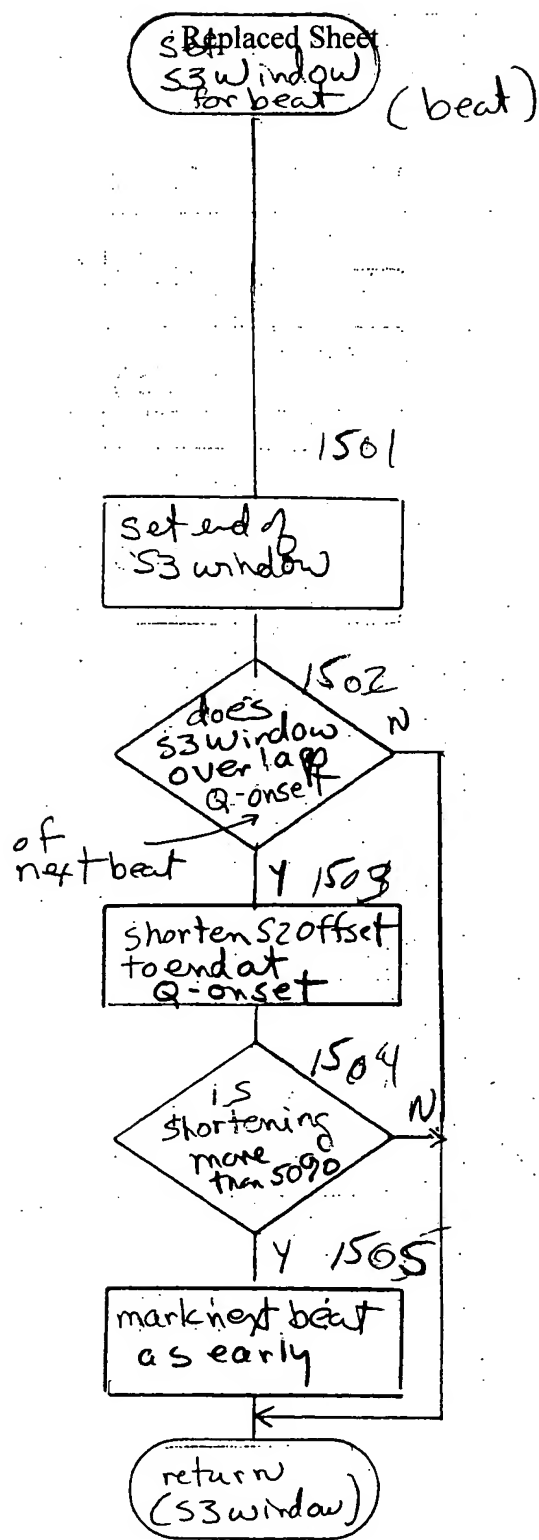 Replaced Sheet
set
S3 window
for beat
(beat)
1501
set end of
S3 window
1502
does
S3 window
overlapp
Q-onset
N
of
next beat
Y 1503
shorten S2 Offset
to end at
Q-onset
1504
is
shortening
more
than 50%
N
Y 1505
mark next beat
as early
return
(S3 window)